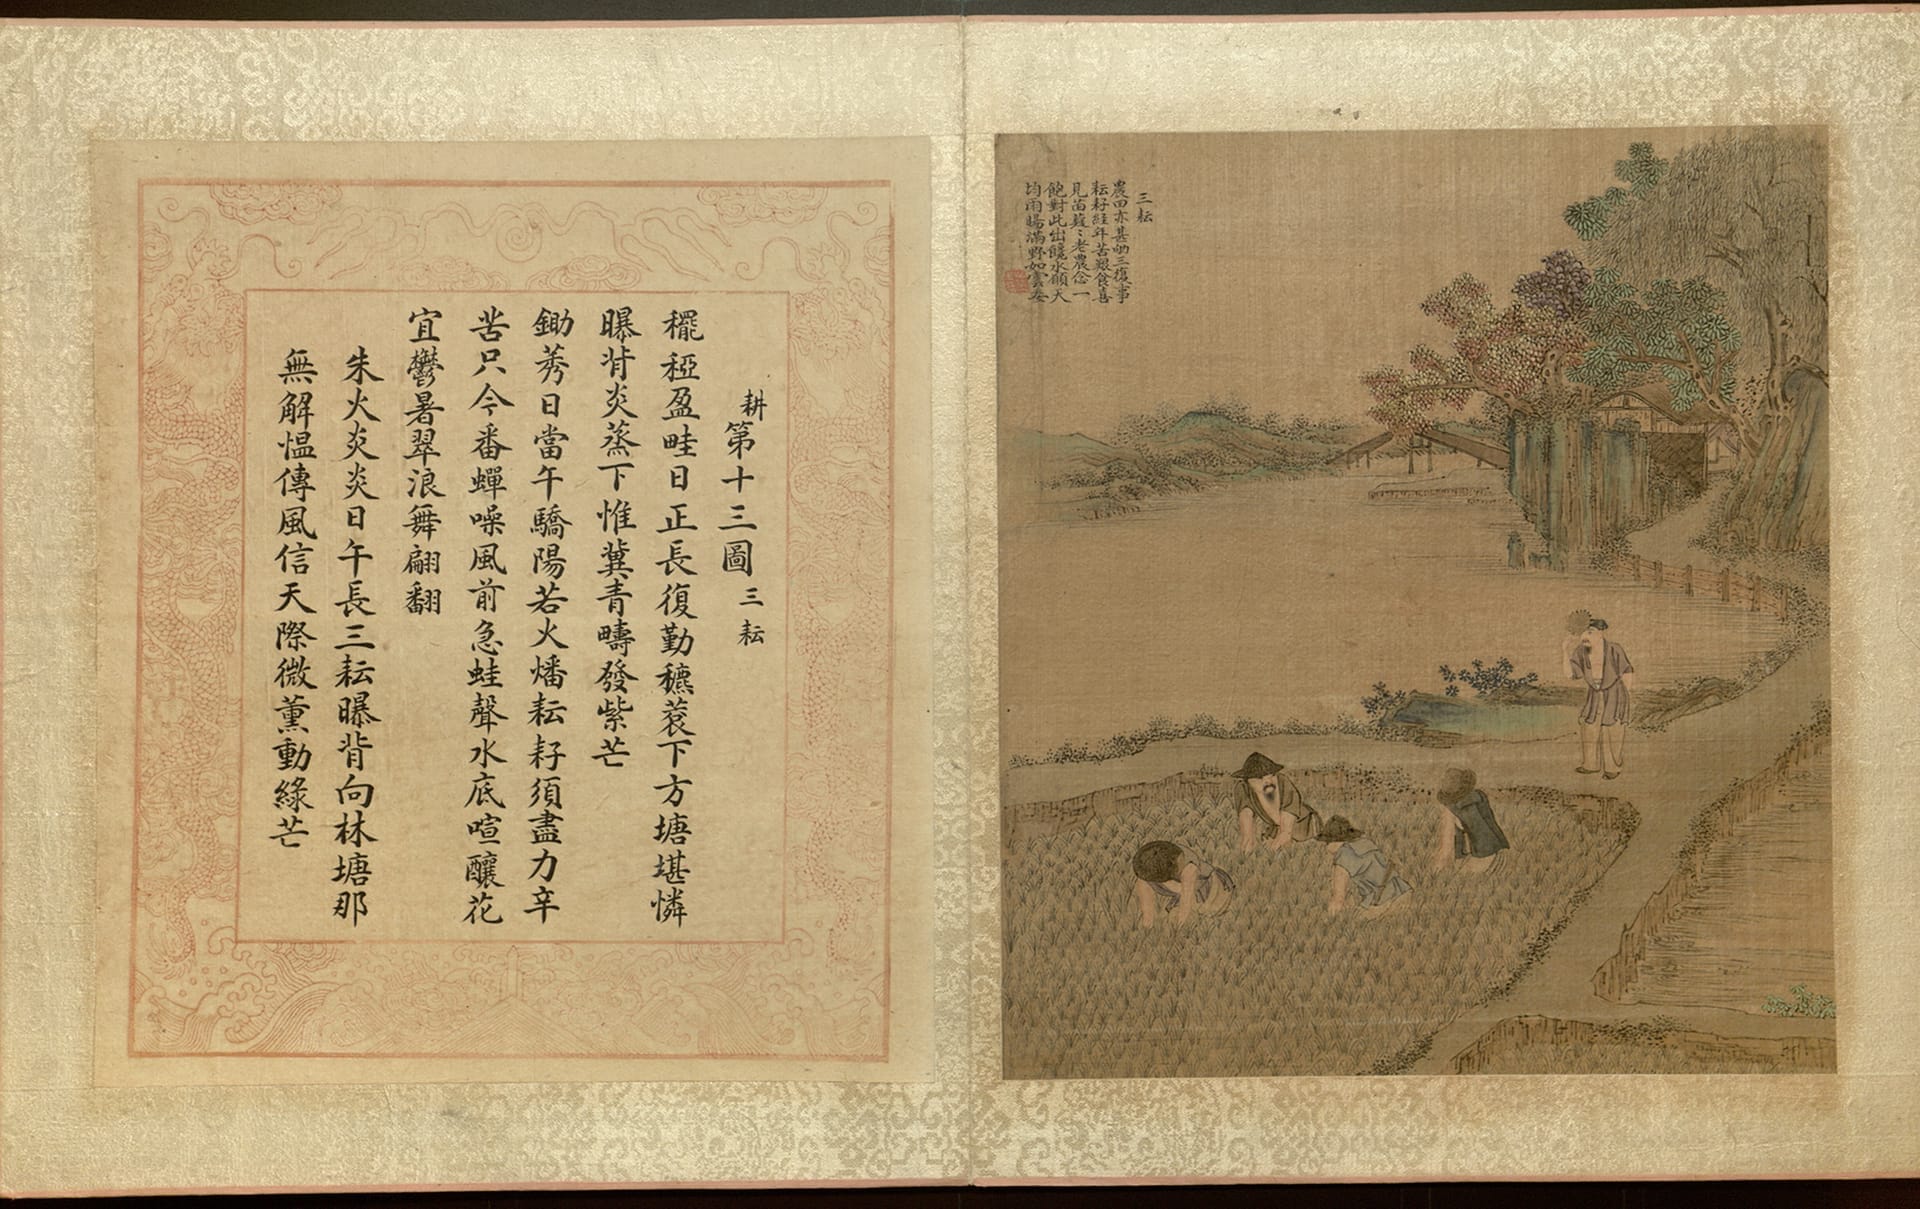 三耘
農田亦甚劬三復事
耘耔經年苦艱食喜
見苗薿〻老農念一
飽對此出饞水願天
均雨暘滿野如雲委
耕第十三圖三耘
䆉稏盈畦日正長復勤穮蔉下方塘堪憐
曝背炎蒸下惟冀青疇發紫芒
鋤莠日當午驕陽若火燔耘耔須盡力辛
苦只今番蟬噪風前急蛙聲水底喧釀花
宜鬱暑翠浪舞翩翻
朱火炎炎日午長三耘曝背向林塘那
無解愠傳風信天際微薰動綠芒